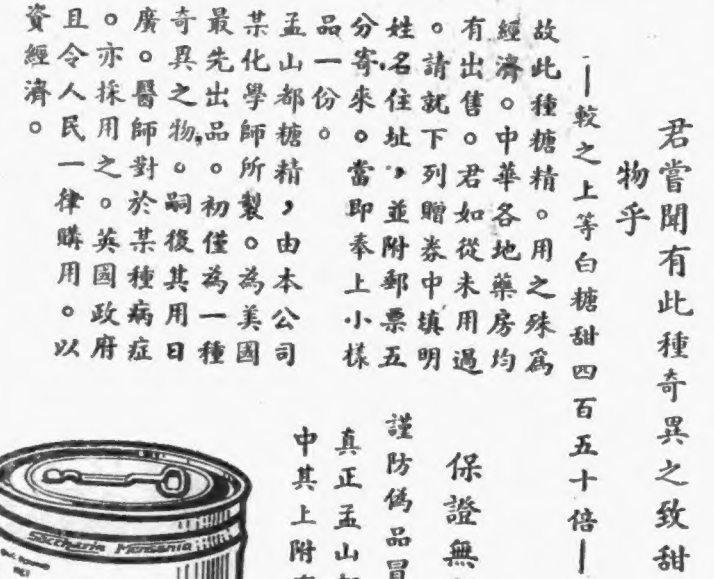 君嘗聞有此種奇異之致甜
物乎
—較之上等白糖甜四百五十倍—
故此種糖精。用之殊爲
經濟。中華各地藥房均
有出售。君如從未用過
。請就下列贈券中填明
姓名住址，並附郵票五
分寄來。當即奉上小樣
品一份。
孟山都糖精，由本公司
某化學師所製。為美國
最先出品。初僅為一種
奇異之物。嗣後其用日
廣。醫師對於某種病症
。亦採用之。英國政府
且令人民一律購用。以
資經濟。
保證無
謹防偽品冒
真正孟山
中其上附
Saccharin Monsanto
NET